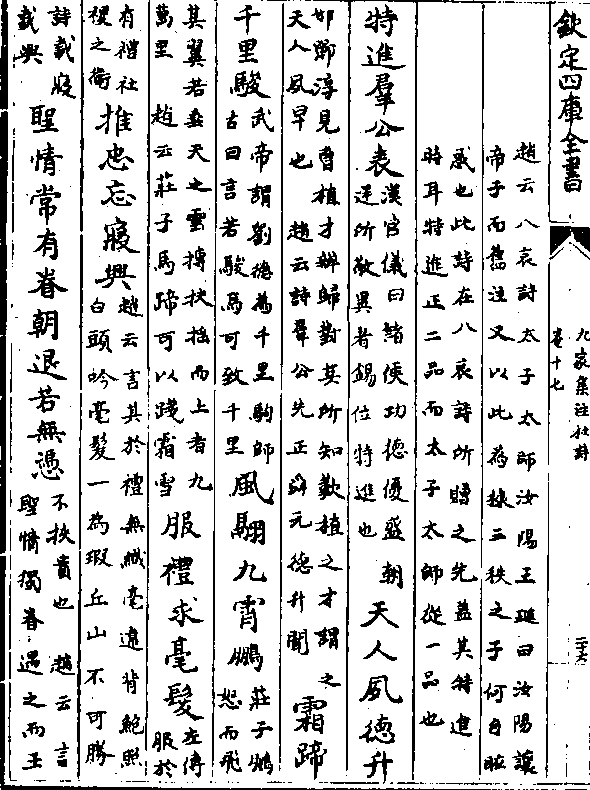 欽定四庫全書
九家集注杜詩
卷十七
二十六
趙云八哀詩太子太師汝陽王璡曰汝陽讓
帝子而舊注又以此為棣三秩之子何自眩
惑也此詩在八哀詩所贈之先蓋其特進
時耳特進正二品而太子太師從一品也
特進羣公表漢官儀曰諸侯功德優盛朝廷所敬異者錫位特進也天人夙德升
邯鄲淳見曹植才辨歸對其所知歎植之才謂之天人夙早也 趙云詩羣公先正舜元德升聞霜蹄
千里駿武帝謂劉德為千里駒師古曰言若駿馬可致千里風翮九霄鵬莊子鵬怒而飛
其翼若垂天之雲摶扶搖而上者九萬里 趙云莊子馬蹄可以踐霜雪服禮求毫髮左傳服於
有禮社稷之衛推忠忘寢興趙云言其於禮無纎毫違背鮑照白頭吟毫髮一為瑕丘山不可勝
詩載寢載興聖情常有眷朝退若無憑不挾貴也 趙云言聖情獨眷遇之而王